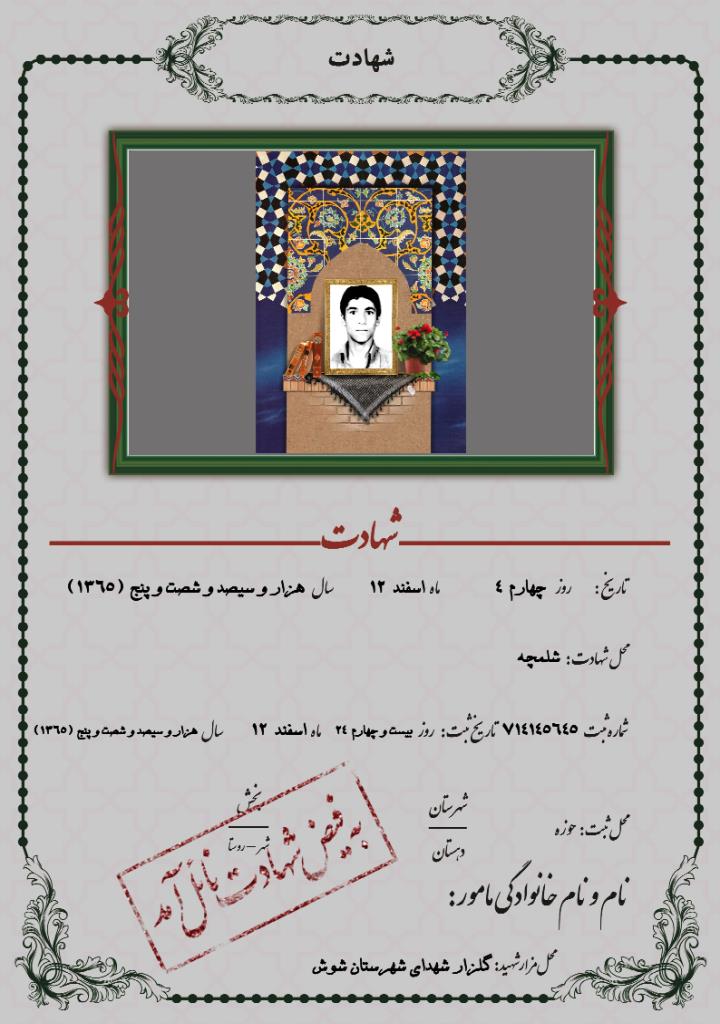 شهادت
شهادت
تاریخ: روز چهارم ۴ ماه اسفند ۱۲ سال هزار و سیصد و شصت و پنج (۱۳۶۵)
محل شهادت: شلمچه
شماره ثبت ۷۱۴۱۴۵۶۴۵ تاریخ ثبت: روز بیست و چهارم ۲۴ ماه اسفند ۱۲ سال هزار و سیصد و شصت و پنج (۱۳۶۵)
محل ثبت: حوزه شهرستان بخش
دهستان شهر - روستا
به فیض شهادت نائل آمد
نام و نام خانوادگی مامور:
محل مزار شهید: گلزار شهدای شهرستان شوش